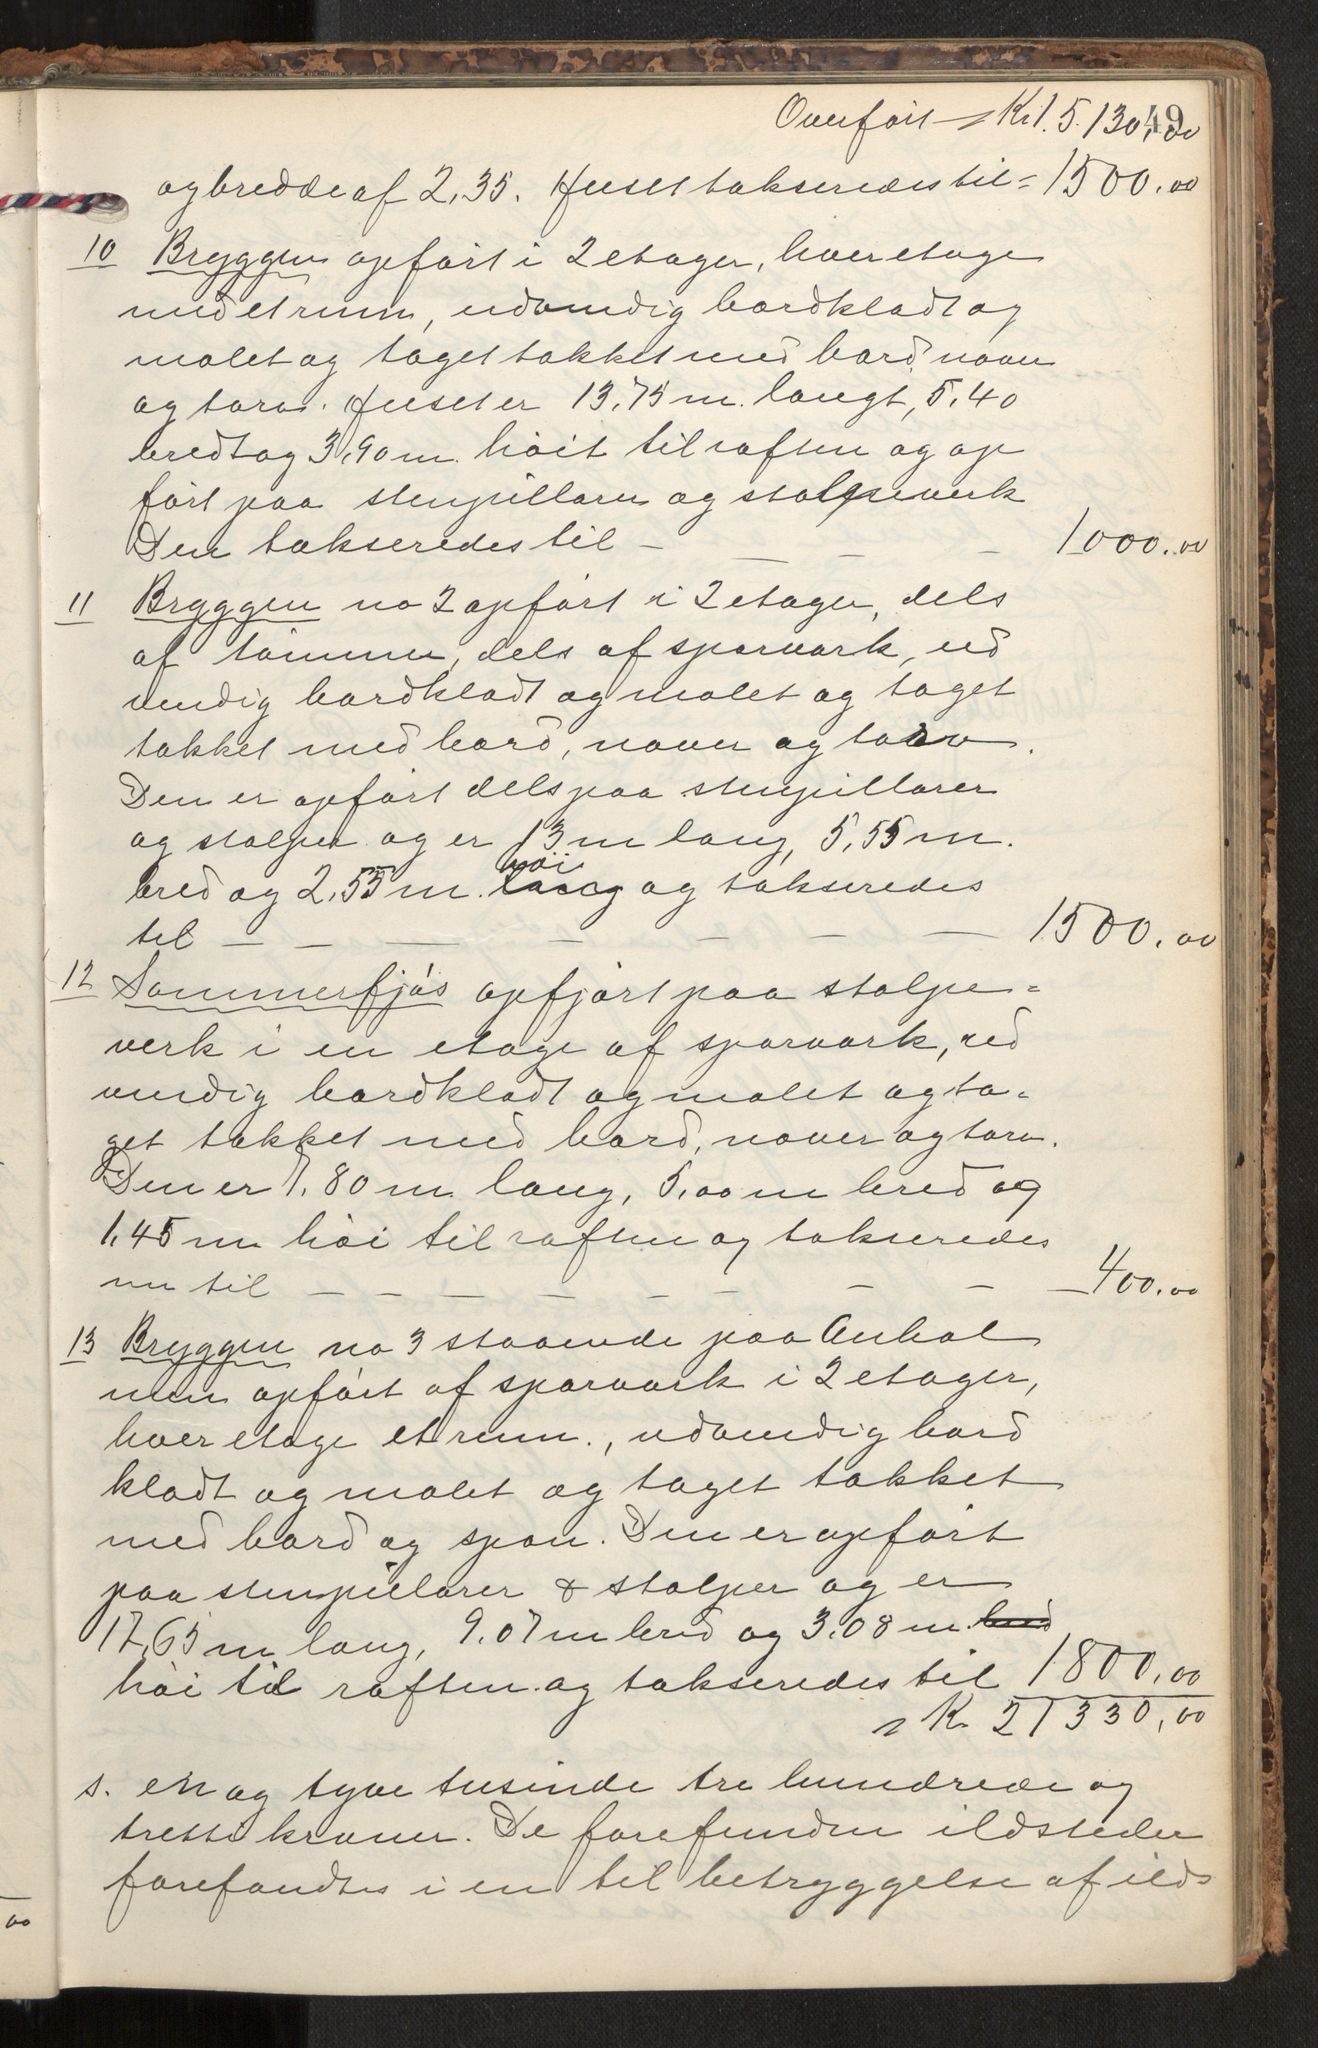 Overført Kr 15.130,00
49
og bredde af 2,35. Huset takseredes til = 1500.00
10 Bryggen opført i 2 etager, hver etage
med et rum, udvendig bordklædt og
malet og taget tækket med bord, næver
og torv. Huset er 13,75 m. langt, 5,40
bredt og 3,90 m. høit til raften og op
ført paa stenpillarer og stolpeverk
Den takseredes til - - - - 1000.00
11 Bryggen no 2 opført i 2 etager, dels
af tømmer, dels af sparværk, ud
vendig bordklædt og malet og taget
tækket med bord, næver og torv.
Den er opført dels paa stenpillarer
og stolper og er 13 m lang, 5,55 m.
høi
bred og 2,55 m. lang og takseredes
til - - - - - - - 1500.00
12 Sommerfjøs opfjørt paa stolpe=
verk i en etage af sparværk, ud
vendig bordklædt og malet og ta=
get tækket med bord, næver og torv.
Den er 7.80 m. lang, 5,00 m bred og
1,45 m høi til raften og takseredes
nu til - - - - - - - - - 400.00
13 Bryggen no 3 staaende paa Auhol
men opført af sparværk i 2 etager,
hver etage et rum., udvendig bord
klædt og malet og taget tækket
med bord og spon. Den er opført
paa stenpillarer & stolper og er
17,65 m lang, 9.07 m bred og 3.08 m. bred
høi til raften og takseredes til 1800,00
Kr 21330,00
s. en og tyve tusinde tre hundrede og
tretti kroner. De forefundne ildsteder
forefandtes i en til betryggelse af ilds